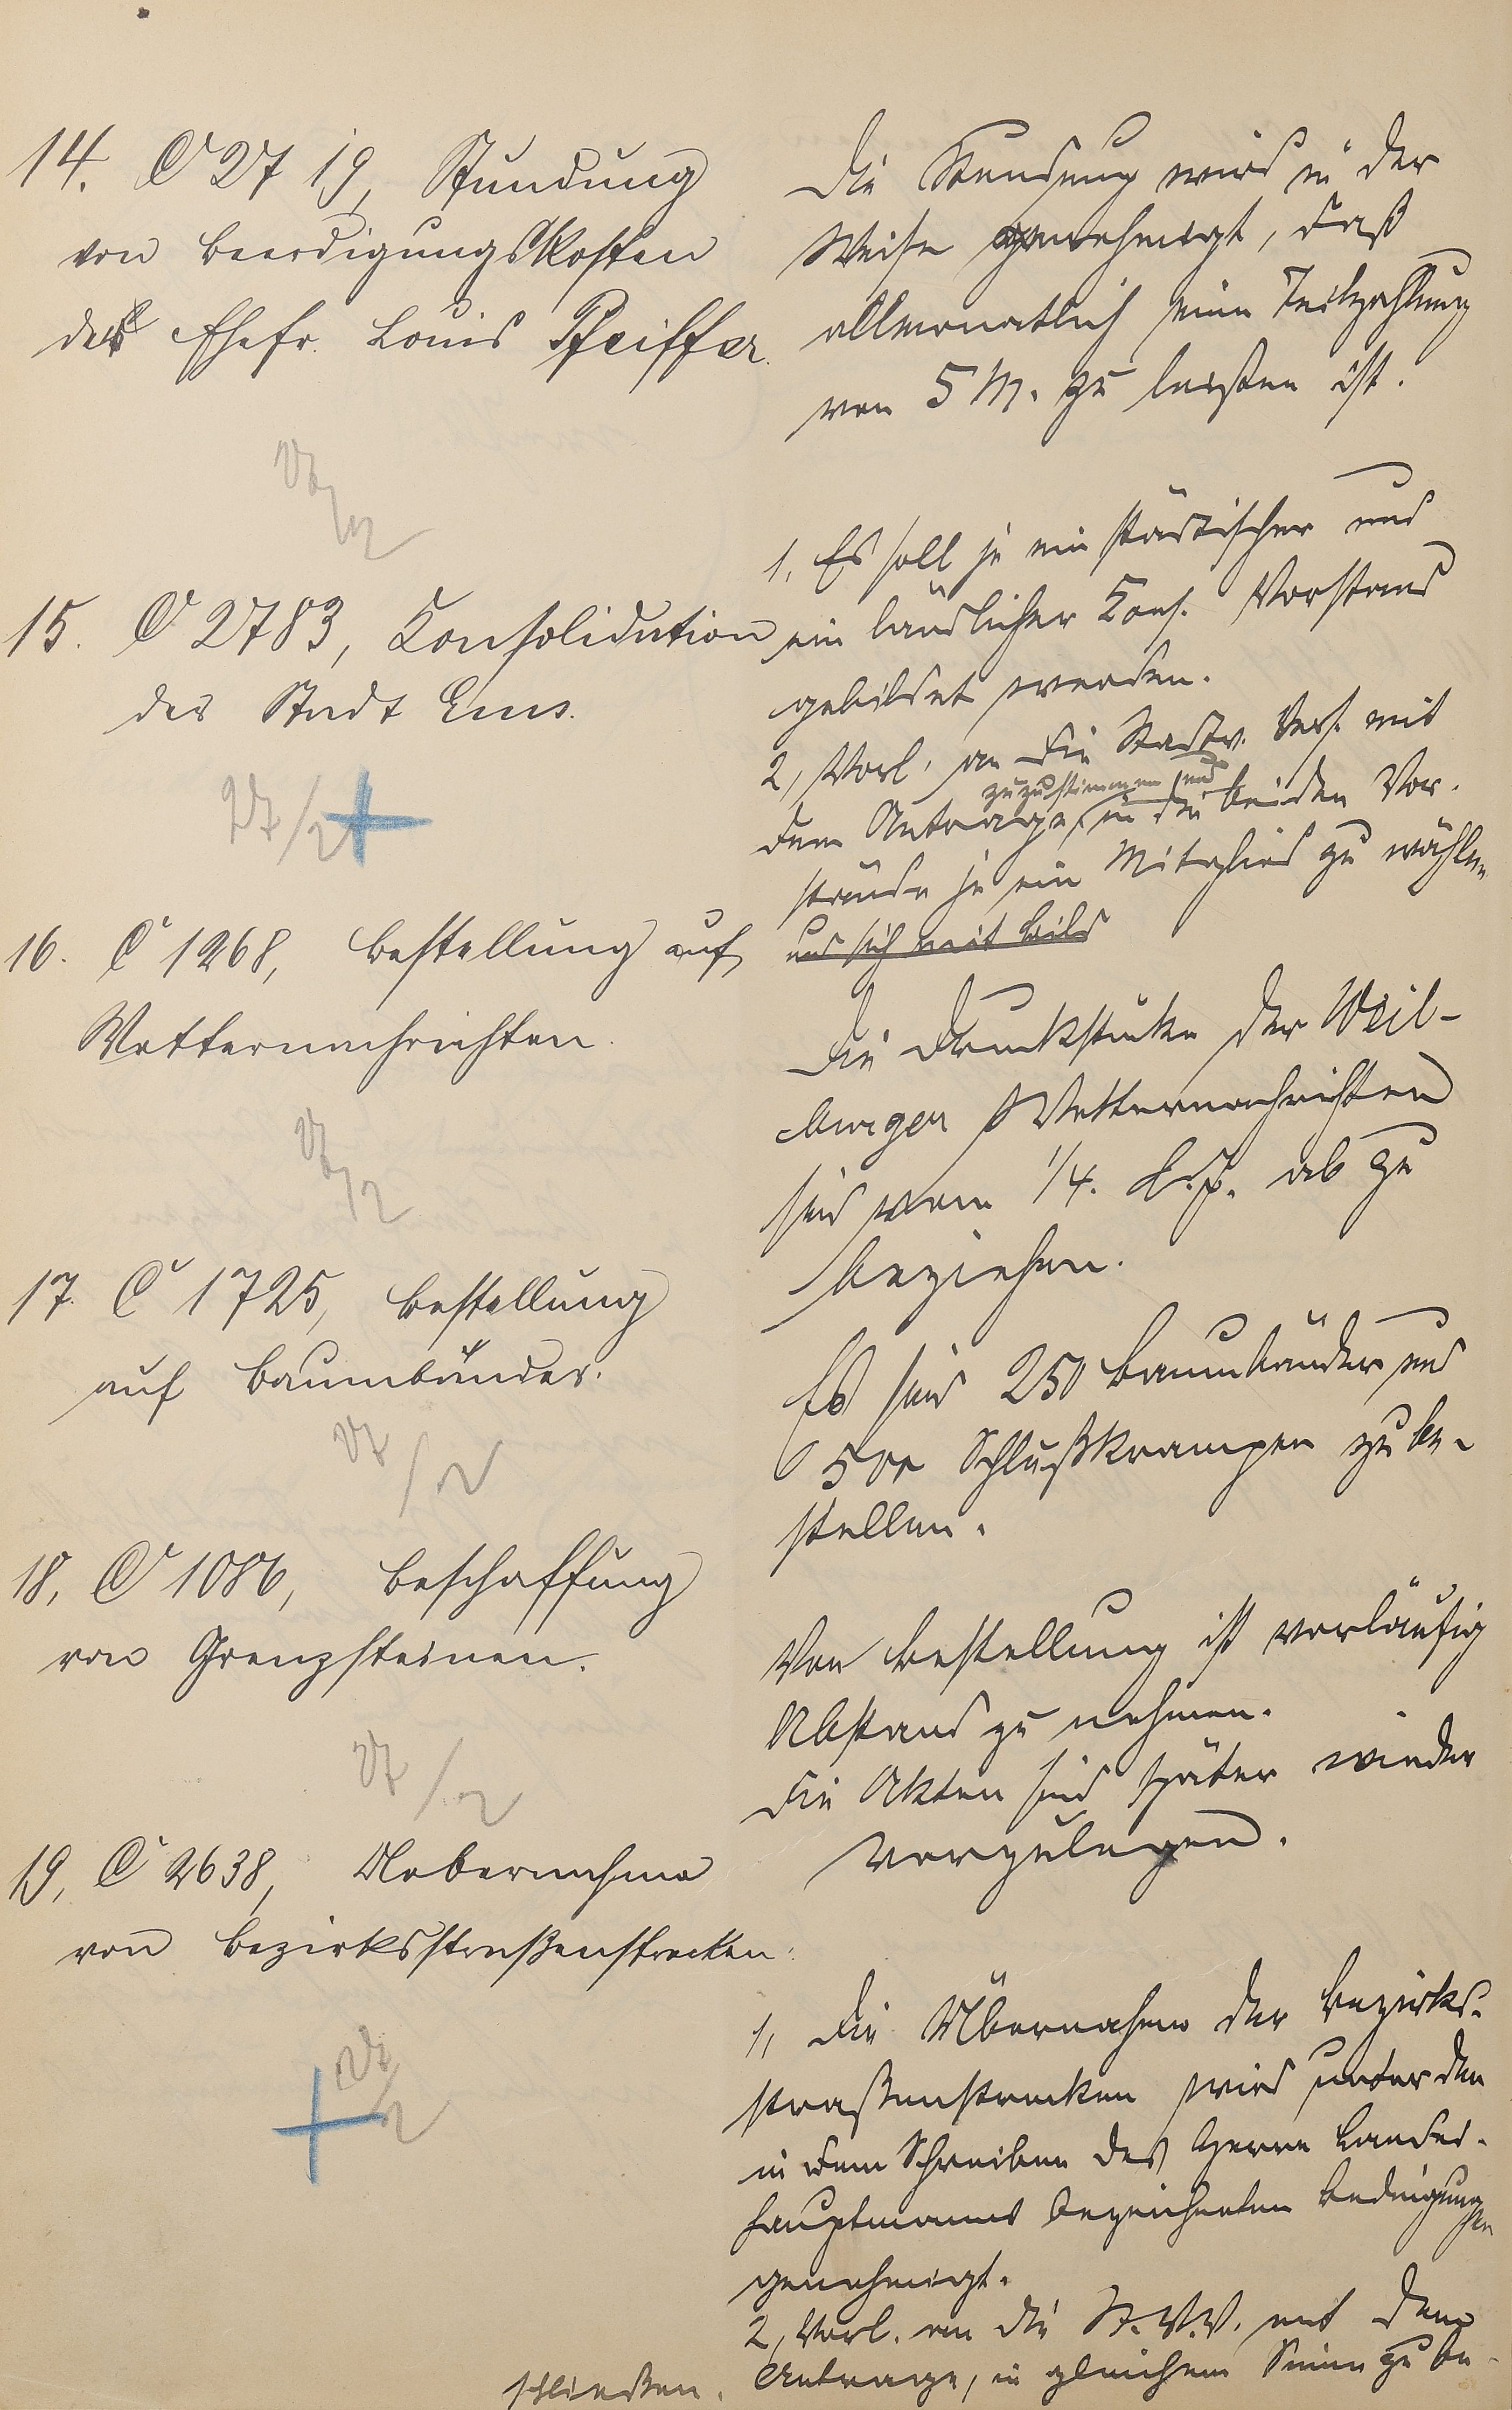 14. C 27 19, Stundung
von Beerdigungskosten
der Ehefr. Louis Pfeiffer.
Die Stundung wird in der
Weise genehmigt, daß
allmonatlich eine Teilzahlung
von 5 M. zu leisten ist.
15. C 2783, Konsolidation
der Stadt Ems.
1, Es soll je ein städtischer und
ein ländlicher Kons. Vorstand
gebildet werden.
2, Vorl. an die Stadtv. Vers. mit
zuzustimmen und
dem Antrage, in die beiden Vor-
stände je ein Mitglied zu wählen
und sich mit bild
16. C 1268, Bestellung auf
Wetternachrichten.
Die Druckstücke der Weil-
burger Wetternachrichten
sind vom 1/4. d. J. ab zu
beziehen.
17. C 1725, Bestellung
auf Baumbänder.
Es sind 250 Baumbänder und
500 Schlußkrampen zu be-
stellen.
18, C 1086, Beschaffung
von Grenzsteinen.
Von Bestellung ist vorläufig
Abstand zu nehmen.
Die Akten sind später wieder
vorzulegen.
19, C 2638, Uebernahme
von Bezirksstraßenstrecken.
1, Die Übernahme der Bezirks-
straßenstrecken wird unter den
in dem Schreiben des Herrn Landes-
hauptmanns bezeichneten Bedingungen
genehmigt.
2, Vorl. an die St. V. V. mit dem
Antrage, in gleichem Sinne zu be-
schließen.